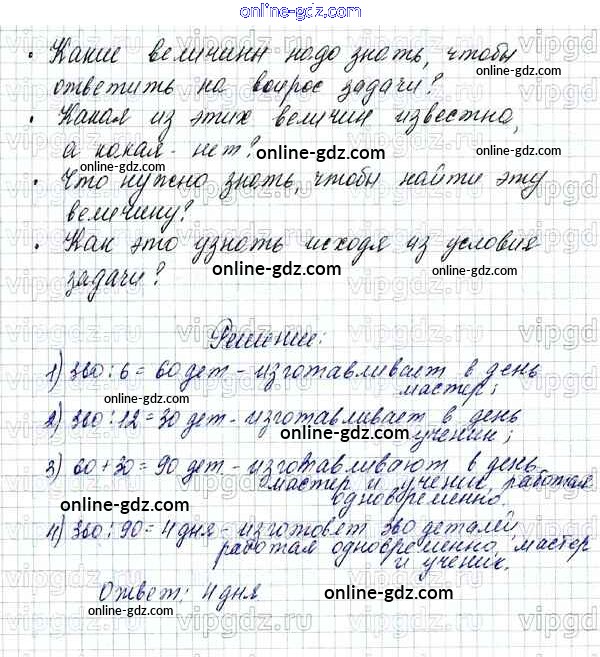 online-gdz.com
• Какие величины надо знать, чтобы
ответить на вопрос задачи?
online-gdz.com
• Какая из этих величин известна,
а какая - нет?
online-gdz.com
online-gdz.com
• Что нужно знать, чтобы найти эту
величину?
• Как это узнать исходя из условия
задачи?
online-gdz.com
online-gdz.com
Решение:
1) 360 : 6 = 60 дет - изготавливает в день
мастер;
online-gdz.com
2) 360 : 12 = 30 дет - изготавливает в день
ученик;
online-gdz.com
3) 60 + 30 = 90 дет - изготавливают в день
мастер и ученик, работая
одновременно.
online-gdz.com
online-gdz.com
4) 360 : 90 = 4 дня - изготовят 360 деталей,
работая одновременно, мастер
и ученик.
online-gdz.com
Ответ: 4 дня
online-gdz.com
online-gdz.com